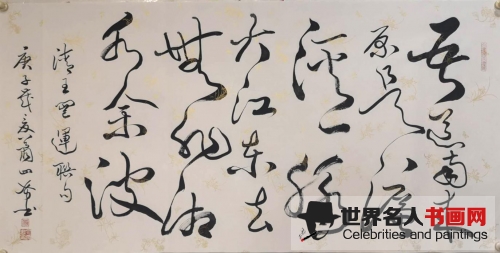 吾道南来
原是濂
溪一脉
大江东去
無非湘
水余波
清王闿運联句
庚子岁
世界名人书画网
Celebrities and paintings